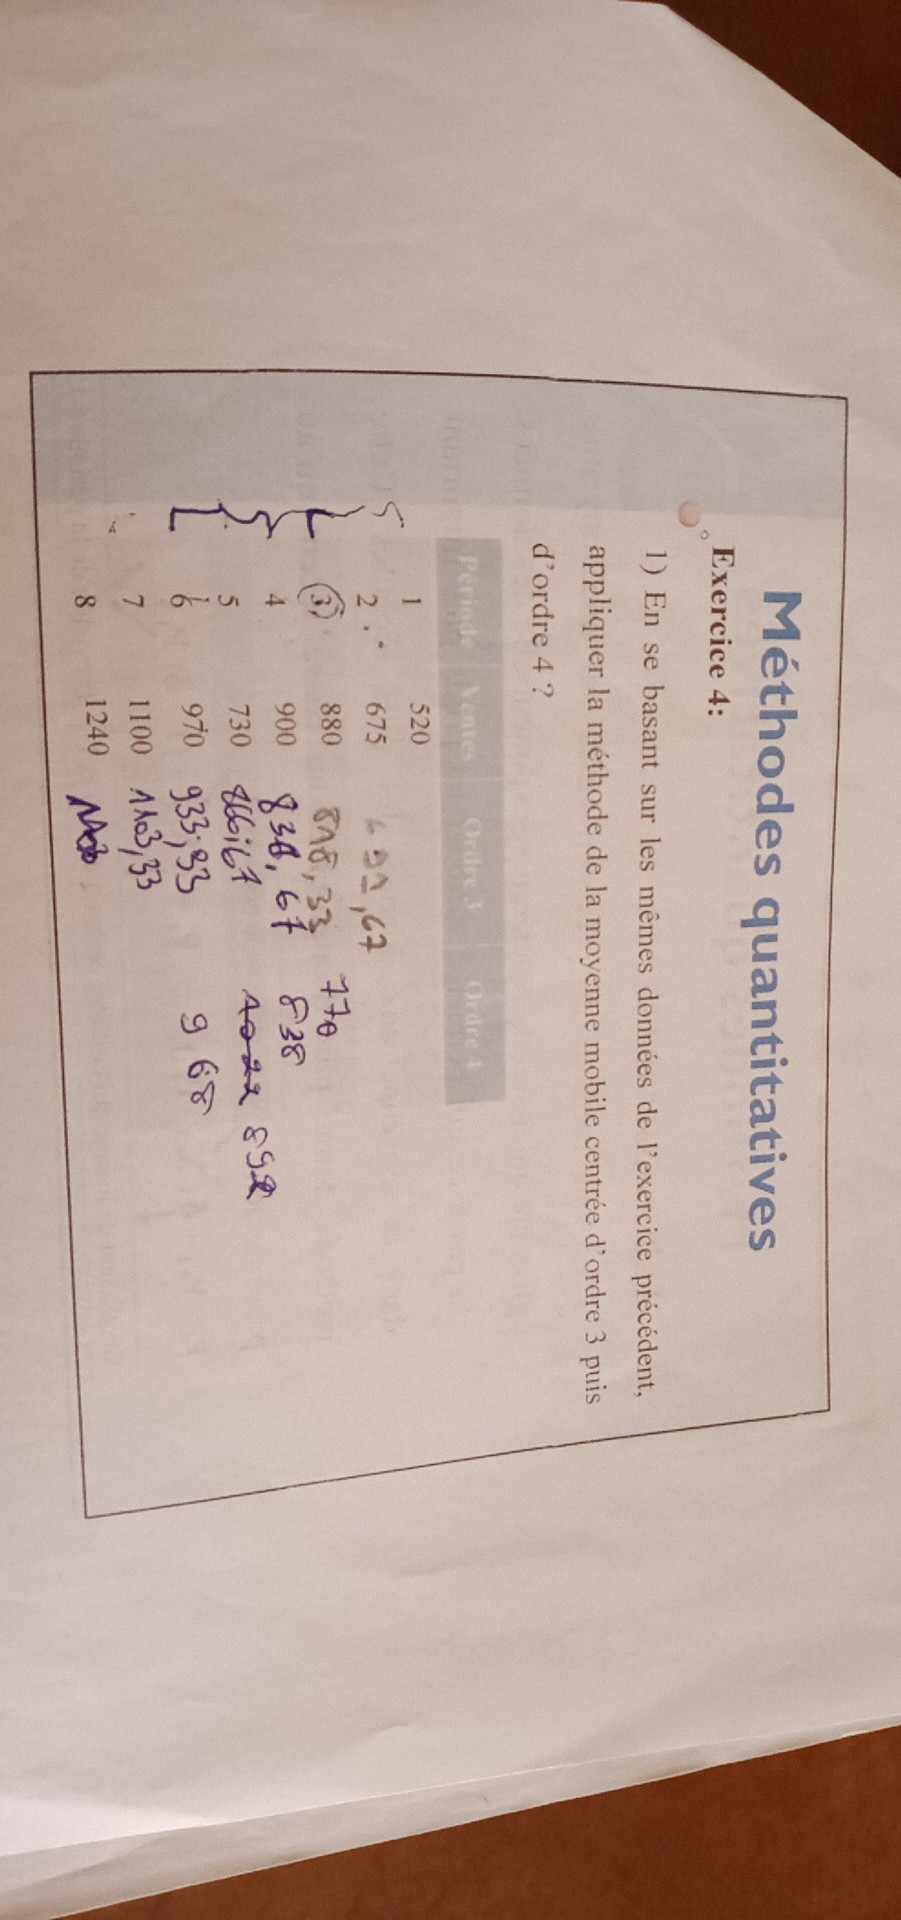 Méthodes quantitatives
Exercice 4:
1) En se basant sur les mêmes données de l'exercice précédent,
appliquer la méthode de la moyenne mobile centrée d'ordre 3 puis
d'ordre 4 ?
Période Ventes Ordre 3 Ordre 4
1 520
2 675 691,67
3 880 818,33 770
4 900 836,67 838
5 730 866,67 892
6 970 933,33 968
7 1100 1103,33
8 1240